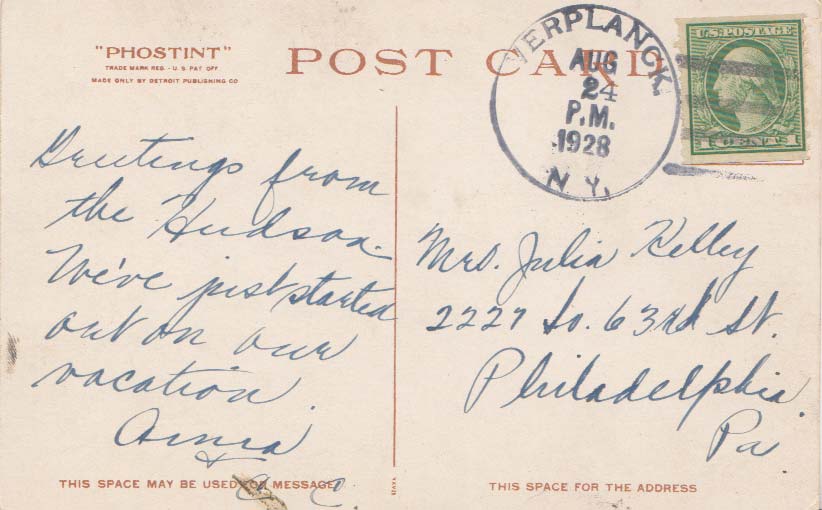 "PHOSTINT"
TRADE MARK REG. - U.S PAT OFF
MADE ONLY BY DETROIT PUBLISHING CO
POST CARD
VERPLANCK.
AUG
24
P.M.
1928
N.Y.
U.S. POSTAGE
1 CENT 1
Greetings from
the Hudson.
We've just started
out on our
vacation.
Anna
+
C.
Mrs. Julia Kelley
2227 So. 63rd St.
Philadelphia.
Pa.
THIS SPACE MAY BE USED FOR MESSAGE
THIS SPACE FOR THE ADDRESS